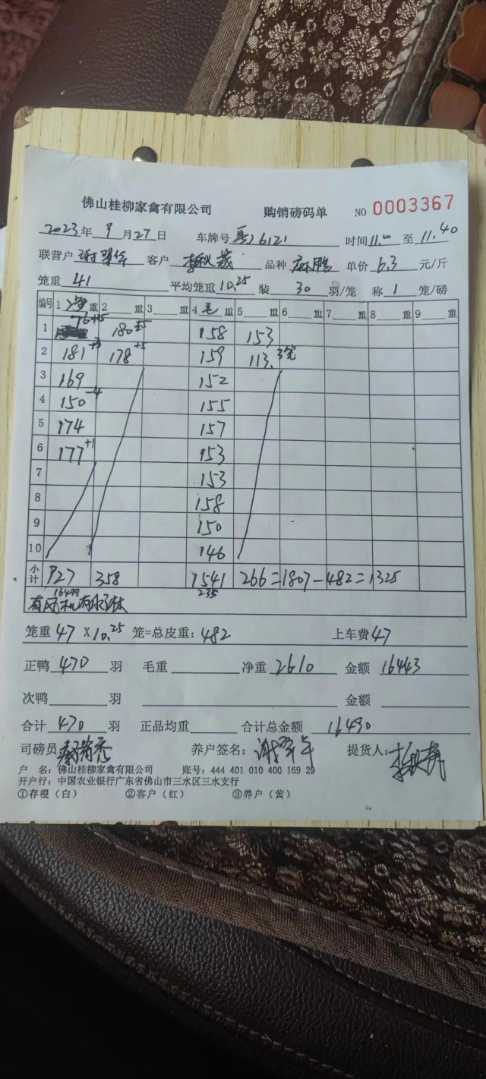 佛山桂柳家禽有限公司 购销磅码单 NO 0003367
2023年9月27日 车牌号 6121 时间11.00至11.40
联营户 客户 品种 麻鸭 单价6.3元/斤
笼重41 平均笼重10.25 装30羽/笼 称1笼/磅
编号 1净重 2重 3重 4毛重 5重 6重 7重 8重 9重
1 76+5 180+5 158 153
2 181 178+5 159 113.
3 169 152
4 150-4 155
5 174 157
6 177+1 153
7 153
8 158
9 150
10 146
小计 927 358 1541 266=1807-482=1325
235
笼重47×10.25笼=总皮重:482 上车费47
正鸭470羽 毛重 净重2610 金额16443
次鸭 羽 金额
合计470羽 正品均重 合计总金额16490
司磅员 养户签名: 提货人:
户 名:佛山桂柳家禽有限公司 账号:444 401 010 400 169 29
开户行:中国农业银行广东省佛山市三水区三水支行
①存根(白) ②客户(红) ③养户(黄)